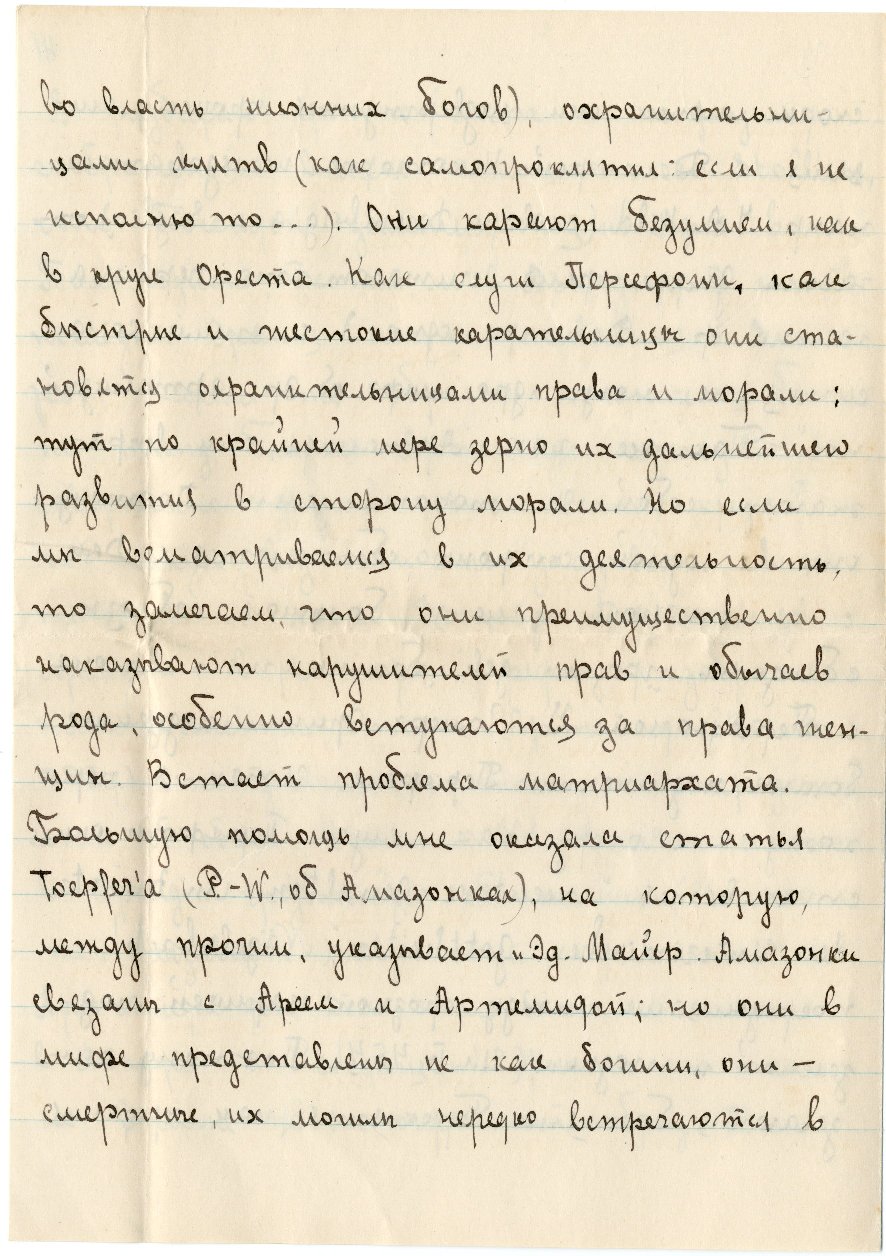 во власть нижних богов), охранительни-
цами клятв (как самопроклятия: если я не
исполню то...). Они карают безумием, как
в круге Ореста. Как слуги Персефоны, как
быстрые и жестокие карательницы они ста-
новятся охранительницами права и морали;
тут по крайней мере зерно их дальнейшего
развития в сторону морали. Но если
мы всматриваемся в их деятельность,
то замечаем, что они преимущественно
наказывают нарушителей прав и обычаев
рода, особенно вступаются за права жен-
щин. Встает проблема матриархата.
Большую помощь мне оказала статья
Toepfer'a (P.-W., об Амазонках), на которую,
между прочим, указывает и Эд. Майер. Амазонки
связаны с Ареем и Артемидой; но они в
мифе представлены не как богини, они —
смертные, их могилы нередко встречаются в